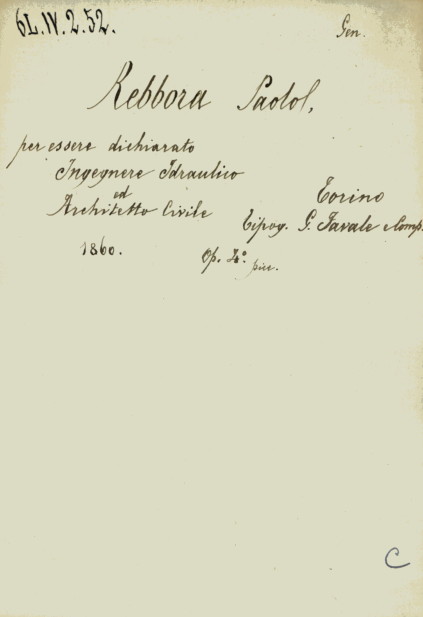 6L.IV.2.52.
Gen.
Rebbora Paolol,
per essere dichiarato
Ingegnere Idraulico
ed
Architetto Civile
Torino
Tipog. G. Favale e Comp.
1860.
Op. 4º. picc.
C